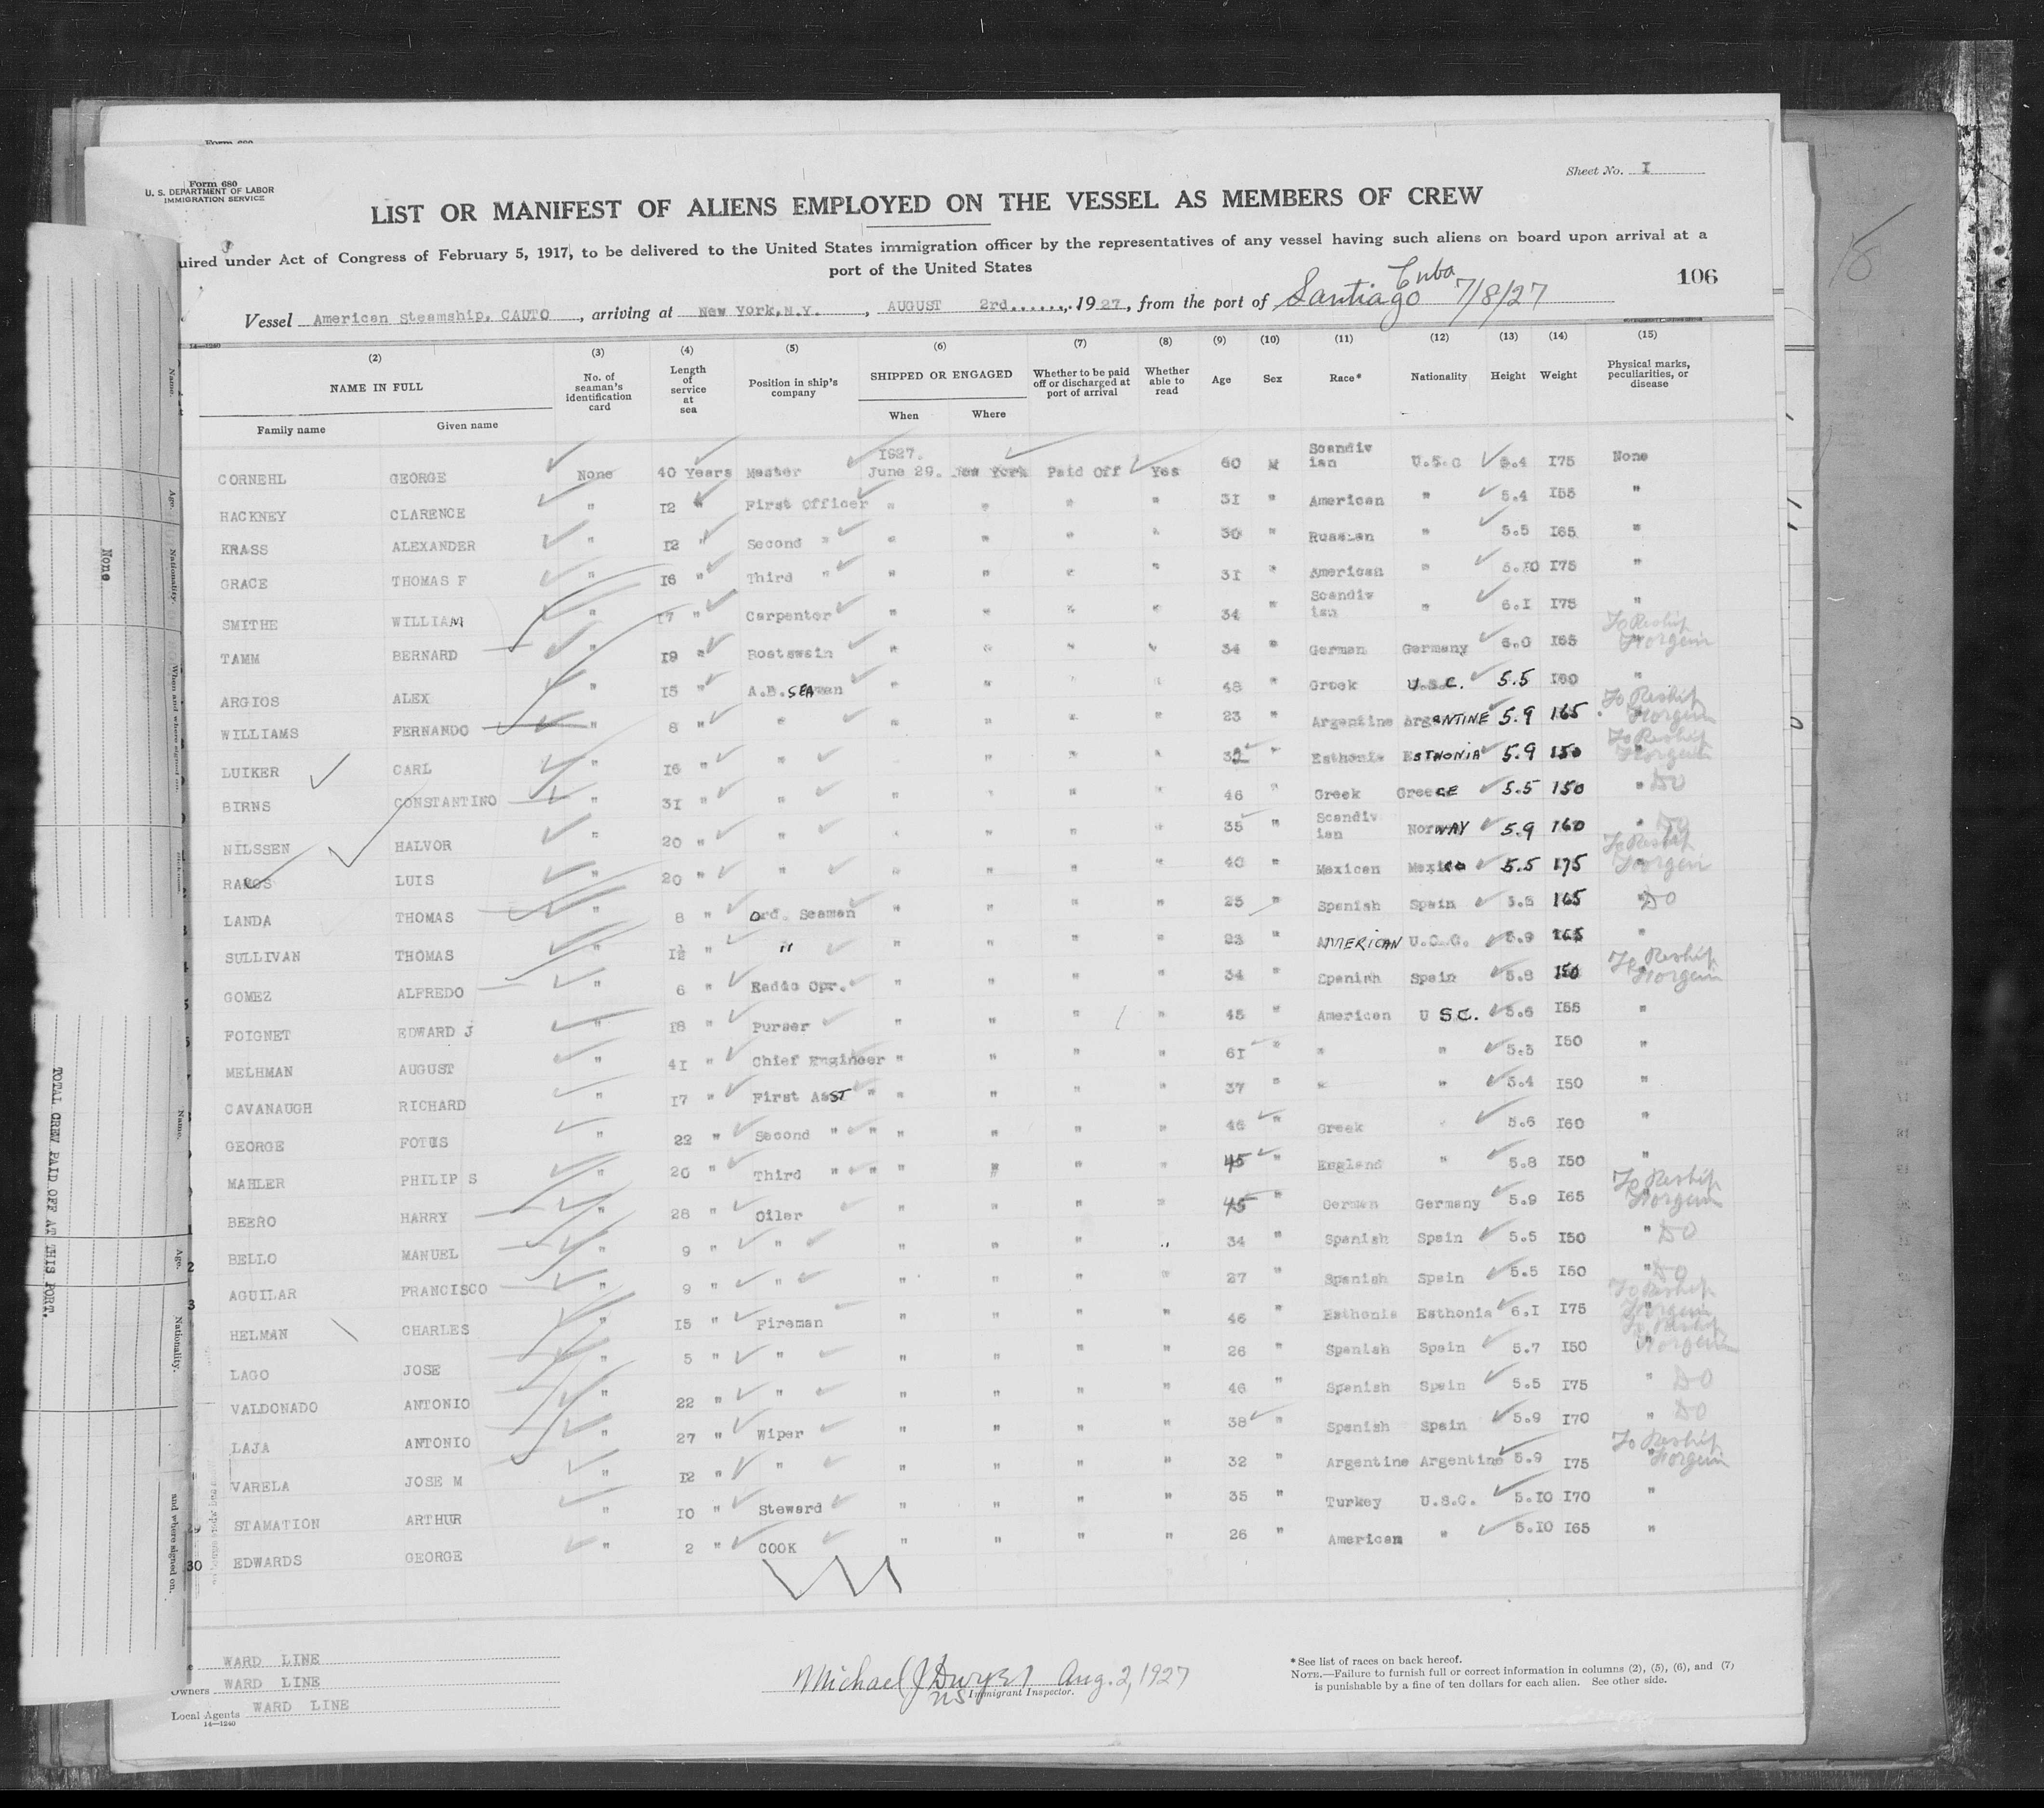 Form 680
Form 680
U. S. DEPARTMENT OF LABOR
IMMIGRATION SERVICE
Sheet No. I
LIST OR MANIFEST OF ALIENS EMPLOYED ON THE VESSEL AS MEMBERS OF CREW
uired under Act of Congress of February 5, 1917, to be delivered to the United States immigration officer by the representatives of any vessel having such aliens on board upon arrival at a
port of the United States
106
Vessel American Steamship, CAUTO, arriving at New York, N.Y., AUGUST 2rd......, 1927, from the port of Santiago Cuba 7/8/27
14—1240
(2) (3) (4) (5) (6) (7) (8) (9) (10) (11) (12) (13) (14) (15)
NAME IN FULL No. of seaman's identification card Length of service at sea Position in ship's company SHIPPED OR ENGAGED Whether to be paid off or discharged at port of arrival Whether able to read Age Sex Race* Nationality Height Weight Physical marks, peculiarities, or disease
Family name Given name When Where
CORNEHL GEORGE None 40 Years Master 1927. June 29. New York Paid Off Yes 60 M Scandiv ian U.S.C 5.4 I75 None
HACKNEY CLARENCE " I2 " First Officer " " " " 3I " American " 5.4 I55 "
KRASS ALEXANDER " I2 " Second " " " " " 30 " Russian " 5.5 I65 "
GRACE THOMAS F " I6 " Third " " " " " 3I " American " 5.I0 I75 "
SMITHE WILLIAM " I7 " Carpenter " " " " 34 " Scandiv ian " 6.I I75 "
TAMM BERNARD " I9 " Boatswain " " " " 34 " German Germany 6.0 I65 " To Reship Foreign
ARGIOS ALEX " I5 " A.B. SEAman " " " " 48 " Greek U.S.C. 5.5 I60 "
WILLIAMS FERNANDO " 8 " " " " " " 23 " Argentine ArgeNTINE 5.9 165 " To Reship Foreign
LUIKER CARL " I6 " " " " " " 32 " Esthonia ESTHONIA 5.9 150 " To Reship Foreign
BIRNS CONSTANTINO " 3I " " " " " " 46 " Greek Greece 5.5 150 " DO
NILSSEN HALVOR " 20 " " " " " " 35 " Scandiv ian NorWAY 5.9 160 " DO
RAMOS LUIS " 20 " " " " " " 40 " Mexican Mexico 5.5 175 " To Reship Foreign
LANDA THOMAS " 8 " Ord. Seaman " " " " 25 " Spanish Spain 5.5 165 " DO
SULLIVAN THOMAS " I½ " " " " " " 23 " AMERICAN U.S.C. 5.9 165 "
GOMEZ ALFREDO " 6 " Radio Opr. " " " " 34 " Spanish Spain 5.8 150 " To Reship Foreign
FOIGNET EDWARD J " I8 " Purser " " " " 45 " American U SC. 5.6 I55 "
MELHMAN AUGUST " 4I " Chief Engineer " " " " 6I " " " 5.5 I50 "
CAVANAUGH RICHARD " I7 " First AsST " " " " " 37 " " " 5.4 I50 "
GEORGE FOTUS " 22 " Second " " " " " " 46 " Greek " 5.6 I60 "
MAHLER PHILIP S " 20 " Third " " " " " " 45 " England " 5.8 I50 "
BEERO HARRY " 28 " Oiler " " " " 45 " German Germany 5.9 I65 " To Reship Foreign
BELLO MANUEL " 9 " " " " " " 34 " Spanish Spain 5.5 I50 " DO
AGUILAR FRANCISCO " 9 " " " " " " 27 " Spanish Spain 5.5 I50 " DO
HELMAN CHARLES " I5 " Fireman " " " " 46 " Esthonia Esthonia 6.I I75 " To Reship Foreign
LAGO JOSE " 5 " " " " " " 26 " Spanish Spain 5.7 I50 " To Reship Foreign
VALDONADO ANTONIO " 22 " " " " " " 46 " Spanish Spain 5.5 I75 " DO
LAJA ANTONIO " 27 " Wiper " " " " 38 " Spanish Spain 5.9 I70 " DO
VARELA JOSE M " I2 " " " " " " 32 " Argentine Argentine 5.9 I75 " To Reship Foreign
STAMATION ARTHUR " I0 " Steward " " " " 35 " Turkey U.S.C. 5.I0 I70 "
30 EDWARDS GEORGE " 2 " COOK " " " " 26 " American " 5.I0 I65 "
WARD LINE
Owners WARD LINE
Local Agents WARD LINE
14—1240
Michael J Dwyer Aug. 2, 1927
Immigrant Inspector.
*See list of races on back hereof.
NOTE.—Failure to furnish full or correct information in columns (2), (5), (6), and (7)
is punishable by a fine of ten dollars for each alien. See other side.
None.
TOTAL CREW PAID OFF AT THIS PORT.
Name.
Age.
Nationality.
When and where signed on.
Name.
Age.
Nationality.
and where signed on.
18